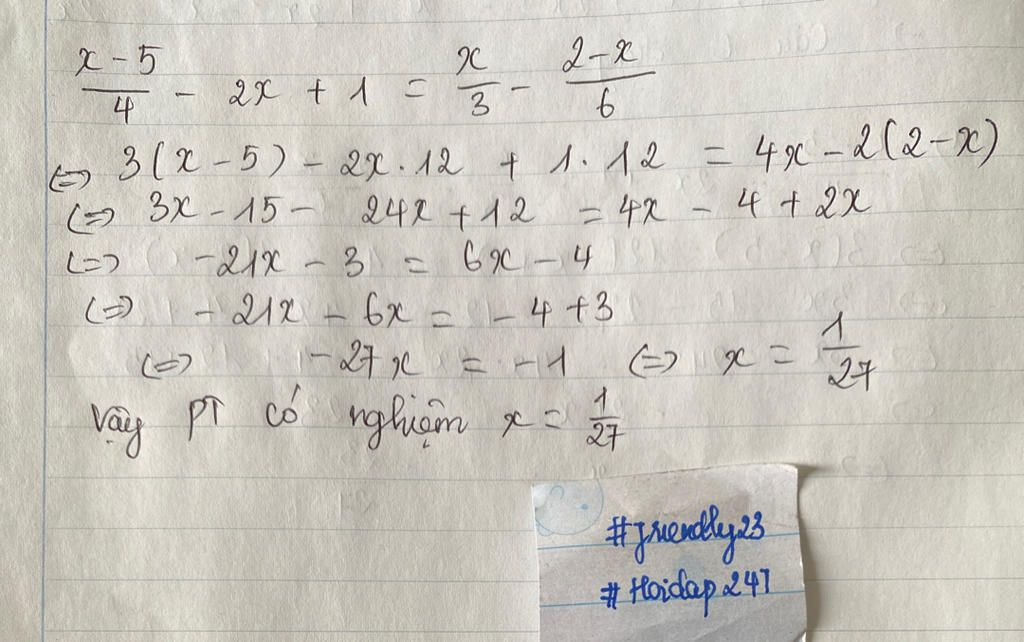 x - 5 / 4 - 2x + 1 = x / 3 - 2 - x / 6
<=> 3(x - 5) - 2x . 12 + 1 . 12 = 4x - 2(2 - x)
<=> 3x - 15 - 24x + 12 = 4x - 4 + 2x
<=> -21x - 3 = 6x - 4
<=> -21x - 6x = -4 + 3
<=> -27x = -1 <=> x = 1/27
Vậy PT có nghiệm x = 1/27
#friendly23
#Hoidap247